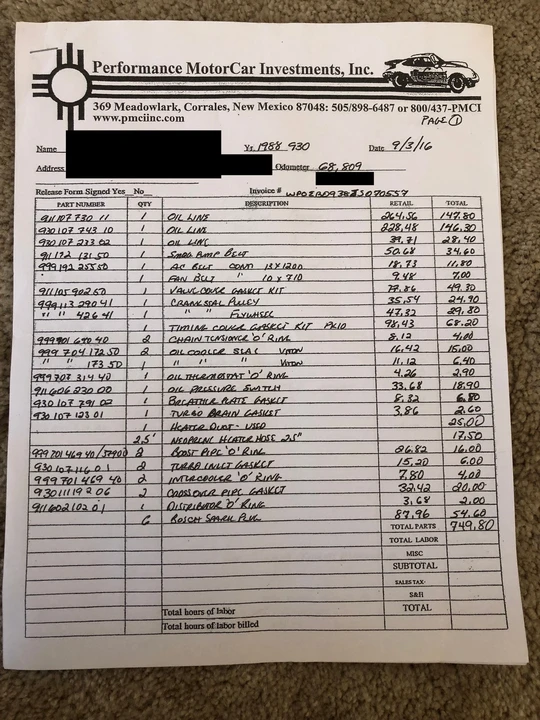 Performance MotorCar Investments, Inc.
369 Meadowlark, Corrales, New Mexico 87048: 505/898-6487 or 800/437-PMCI
www.pmciinc.com PAGE 1
Name Yr. 1988 930 Date 9/3/16
Address Odometer 68,809
Release Form Signed Yes No Invoice #
PART NUMBER QTY DESCRIPTION RETAIL TOTAL
911 107 730 11 1 OIL LINE 264,56 147.80
930 107 743 10 1 OIL LINE 228,48 146,30
930 107 273 02 1 OIL LINE 39,71 28,40
911 172 131.50 1 SMOG PUMP BELT 50,68 34,60
999 192 255 50 1 AC BELT CONTI 13X1200 18,73 11,80
1 FAN BELT " 10 X 710 9,48 7,00
911 105 902 50 1 VALVE COVER GASKET KIT 77,86 49,30
999 113 290 41 1 CRANKSEAL PULLEY 35,54 24,90
" " 426 41 1 " FLYWHEEL 47,32 29,80
1 TIMING COVER GASKET KIT 98,43 68,20
999 701 680 40 2 CHAIN TENSIONER 'O' RING 8,12 4,00
999 704 172,50 2 OIL COOLER SEAL VITON 16,42 15,00
" " 173,50 1 " " " VITON 11,12 6,40
999 707 314 40 1 OIL THERMOSTAT 'O' RING 4,26 2,90
911 606 230 00 1 OIL PRESSURE SWITCH 33,68 18,90
930 107 791 02 1 BREATHER PLATE GASKET 8,82 6,80
930 107 123 01 1 TURBO DRAIN GASKET 3,86 2,60
1 HEATER DUCT - USED 25,00
2,5' NEOPRENE HEATER HOSE 2,5" 17,50
999 701 469 40 2 BOOST PIPE 'O' RING 26,82 16,00
930 107 116 01 2 TURBO INLET GASKET 15,20 6,00
999 701 469 40 2 INTERCOOLER 'O' RING 7,80 4,00
930 111 192 06 2 CROSSOVER PIPE GASKET 32,42 20,00
911 602 102 01 1 DISTRIBUTOR 'O' RING 3,68 2,00
6 BOSCH SPARK PLUG 87,96 54,60
TOTAL PARTS 749,80
TOTAL LABOR
MISC
SUBTOTAL
SALES TAX
S&H
Total hours of labor TOTAL
Total hours of labor billed